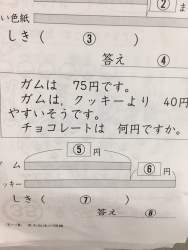 ② ま
い色紙
しき ( ③ )
答え ④
ガムは 75円です。
ガムは、クッキーより 40円
やすいそうです。
チョコレートは 何円ですか。
⑤ 円
ム
⑥ 円
ッキー
しき ( ⑦ )
答え ⑧